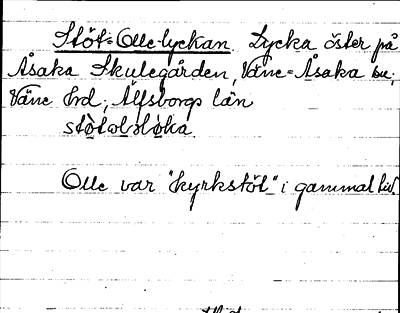 Stöt-Olle-lyckan. Lycka öster på
Åsaka Skulegården, Väne-Åsaka sn;
Väne hrd; Älfsborgs län

Olle var "kyrkstöt" i gammal tid.